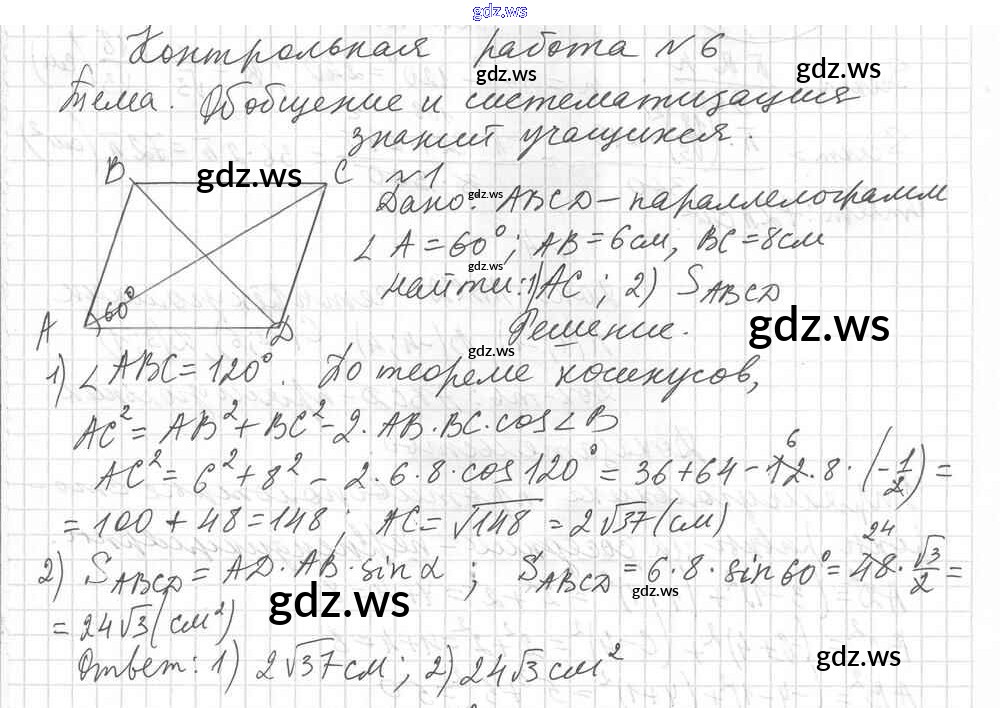 gdz.ws
Контрольная работа №6
gdz.ws
gdz.ws
Тема. Обобщение и систематизация
знаний учащихся.
B
gdz.ws
C
№1
gdz.ws
Дано: ABCD – параллелограмм
∠A = 60°; AB = 6 см, BC = 8 см
gdz.ws
Найти: 1) AC; 2) S_ABCD
60°
A
D
Решение.
gdz.ws
gdz.ws
1) ∠ABC = 120°. По теореме косинусов,
AC² = AB² + BC² - 2·AB·BC·cos∠B
AC² = 6² + 8² - 2·6·8·cos120° = 36 + 64 - 12·8·(-1/2) =
6
= 100 + 48 = 148; AC = √148 = 2√37 (см)
24
2) S_ABCD = AD·AB·sin α; S_ABCD = 6·8·sin60° = 48·√3/2 =
gdz.ws
gdz.ws
= 24√3 (см²)
Ответ: 1) 2√37 см; 2) 24√3 см²
gdz.ws